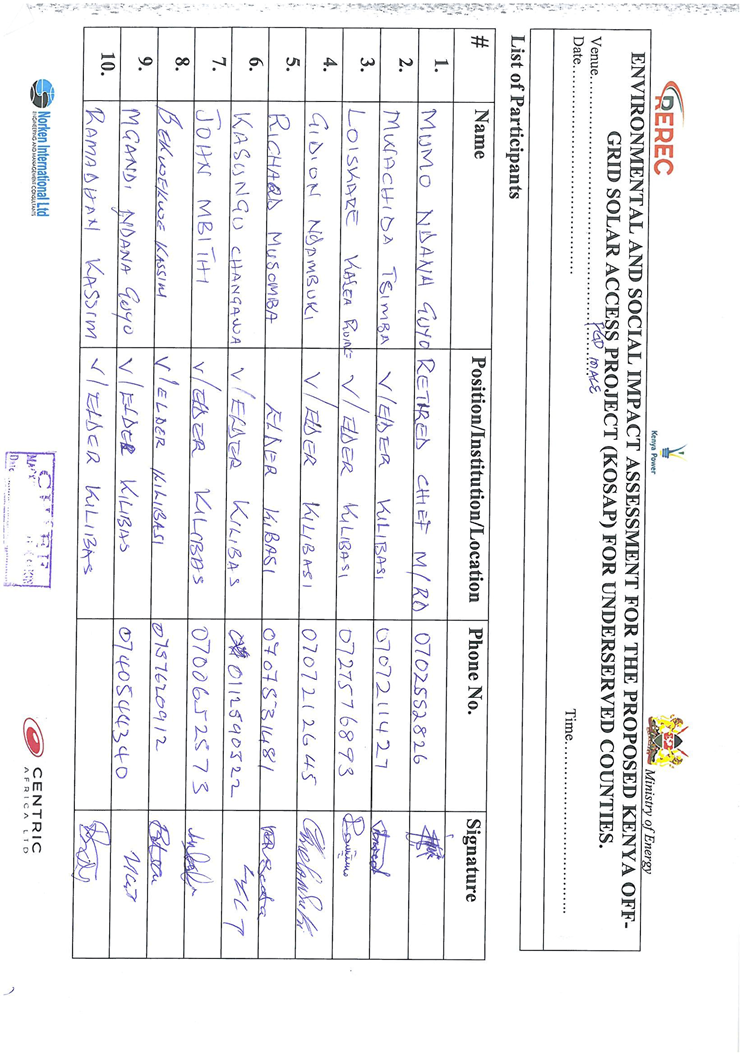 REREC
Kenya Power
Ministry of Energy
ENVIRONMENTAL AND SOCIAL IMPACT ASSESSMENT FOR THE PROPOSED KENYA OFF-
GRID SOLAR ACCESS PROJECT (KOSAP) FOR UNDERSERVED COUNTIES.
Venue.................................................FGD MALE
Date........................................ Time........................................
List of Participants
# Name Position/Institution/Location Phone No. Signature
1. MUMO NDANA GUYO RETIRED CHIEF M/RD 0702552826
2. MWACHIDA TSIMBA V/ELDER KILIBASI 0707211427
3. LOISKARE V/ELDER KILIBASI 0727576893
4. GIDION NDAMBUKI V/ELDER KILIBASI 0707212645
5. RICHARD MUSOMBA ELDER KIBASI 0707531481
6. KASUNGU CHANGAWA V/ELDER KILIBAS 0112590322
7. JOHN MBITHI V/ELDER KILIBAS 0700652573
8. BEKWEKWE KASSIM V/ELDER KILIBASI 0757620912
9. MGANDI NDANA GUYO V/ELDER KILIBAS 0740544340
10. RAMADHAN KASSIM V/ELDER KILIBAS
Norken International Ltd
ENGINEERING AND MANAGEMENT CONSULTANTS
CHIEF
Date
CENTRIC
AFRICA LTD